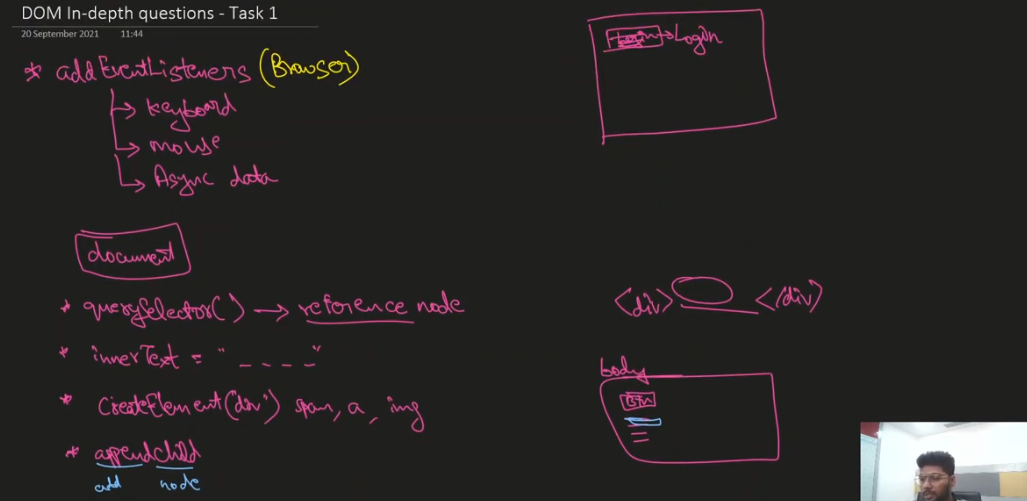 DOM In-depth questions - Task 1
20 September 2021 11:44
* addEventListeners (Browser)
→ keyboard
→ mouse
→ Async data
→ Login
document
* querySelector() → reference node
* innerText = "_ _ _ _"
* createElement('div') span, a, img
* appendChild
add node
<div> </div>
body
Btn